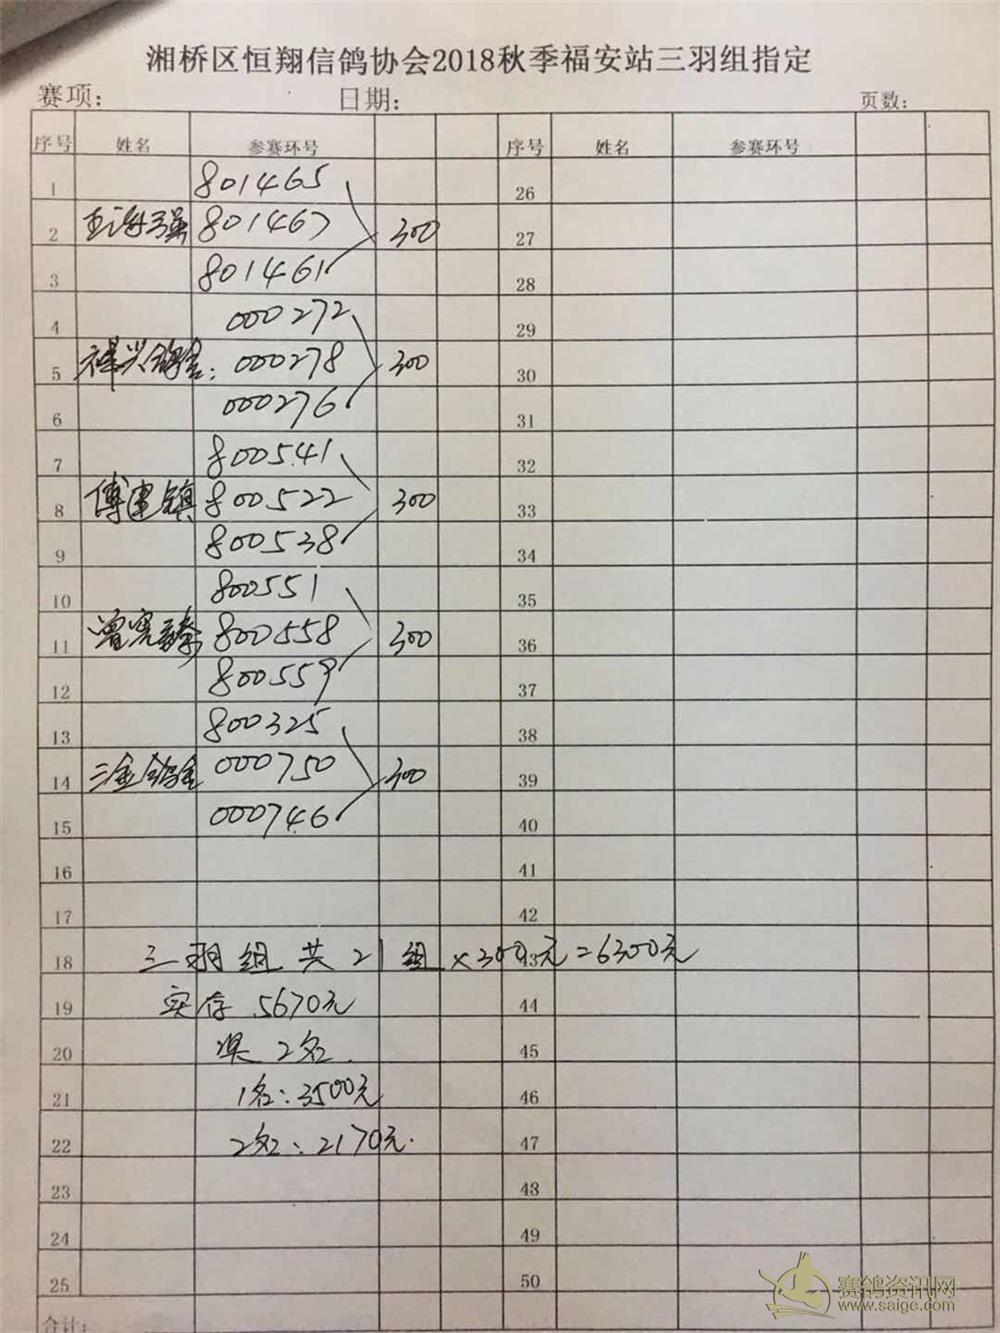 湘桥区恒翔信鸽协会2018秋季福安站三羽组指定
赛项: 日期: 页数:
序号 姓名 参赛环号 序号 姓名 参赛环号
1 801465 26
2 王海强 801467 300 27
3 801461 28
4 000272 29
5 祥兴鸽舍: 000278 300 30
6 000276 31
7 800541 32
8 傅建镇 800522 300 33
9 800538 34
10 800551 35
11 曾宪 800558 300 36
12 800559 37
13 800325 38
14 三金鸽舍 000750 300 39
15 000746 40
16 41
17 42
18 三羽组共21组×300元=6300元 43
19 实存 5670元 44
20 奖2名. 45
21 1名:3500元 46
22 2名:2170元. 47
23 43
24 49
25 50
合计:
赛鸽资讯网
www.saige.com